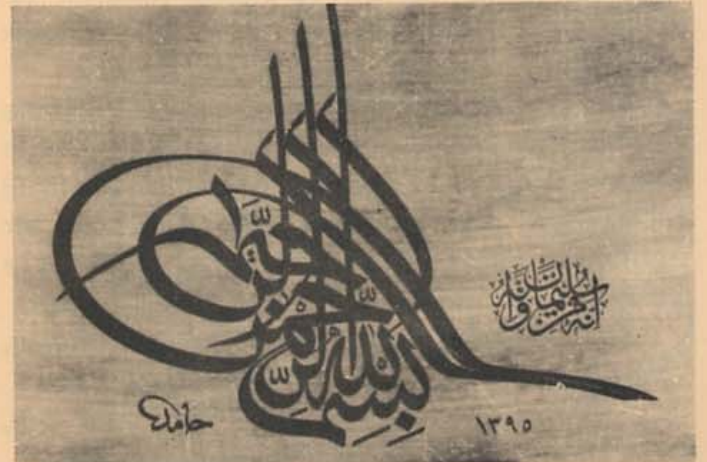 بسم الله الرحمن الرحيم
إنه من سليمان وإنه
حامد
١٣٩٥